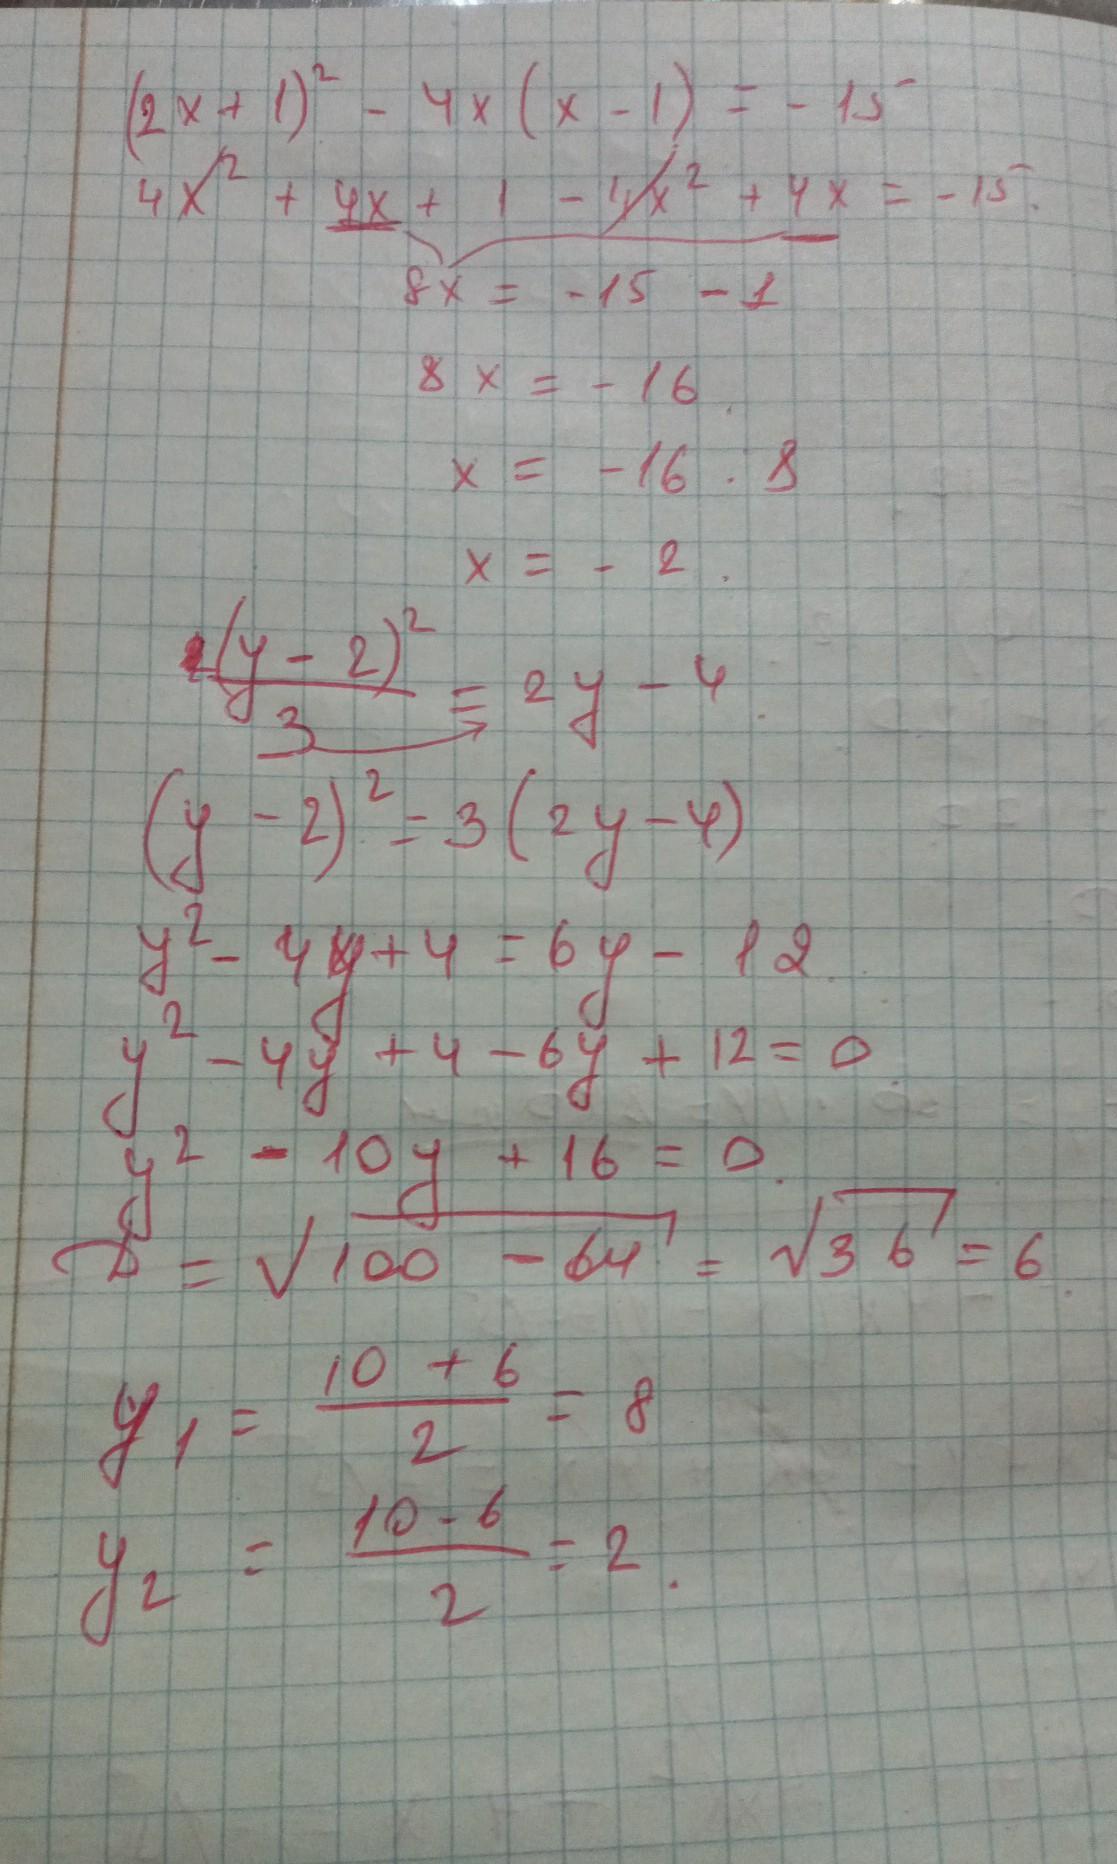 (2x+1)² - 4x(x-1) = -15
4x² + 4x + 1 - 4x² + 4x = -15.
8x = -15 - 1
8x = -16.
x = -16 . 8
x = -2.
(y-2)²/3 = 2y - 4.
(y-2)² = 3(2y-4)
y² - 4y + 4 = 6y - 12.
y² - 4y + 4 - 6y + 12 = 0.
y² - 10y + 16 = 0.
D = √100 - 64 = √36 = 6.
y₁ = 10+6/2 = 8
y₂ = 10-6/2 = 2.